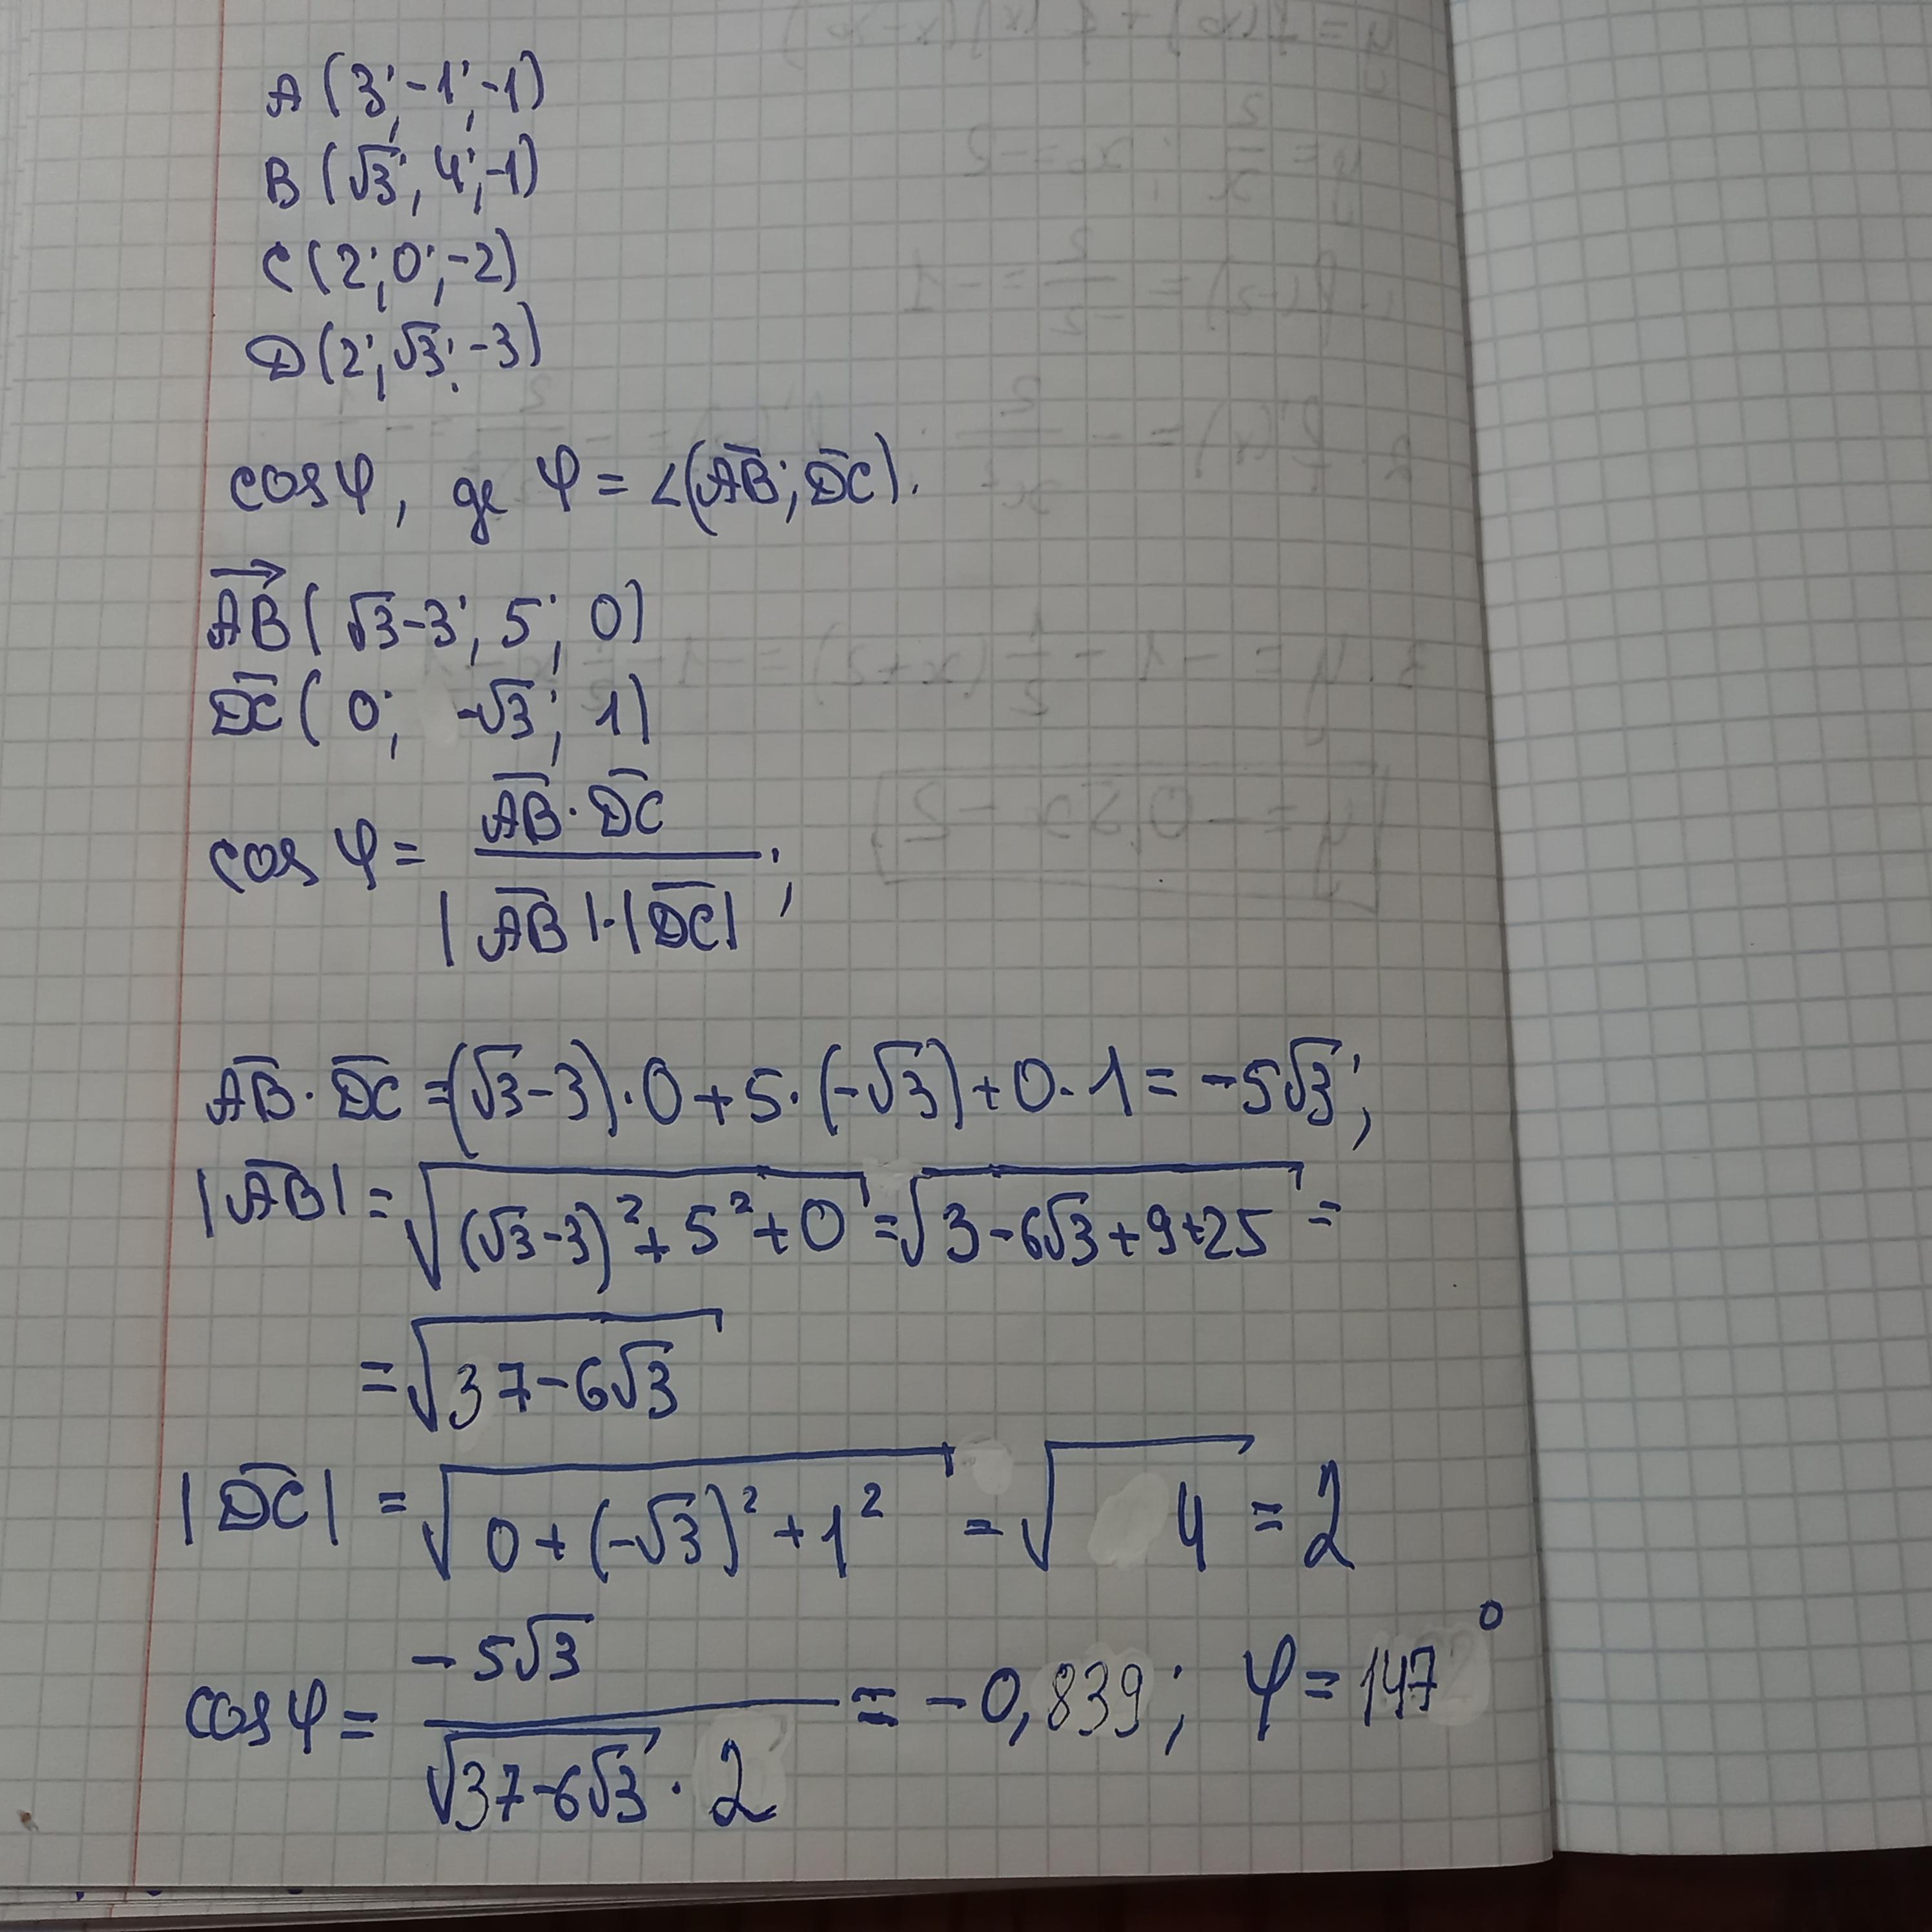 A (3; -1; -1)
B (√3; 4; -1)
C (2; 0; -2)
D (2; √3; -3)
cos φ, де φ = ∠(AB; DC).
AB (√3-3; 5; 0)
DC ( 0; -√3; 1)
cos φ = AB · DC / |AB|·|DC| ;
AB · DC = (√3-3)·0+5·(-√3)+0·1 = -5√3;
|AB| = √((√3-3)²+5²+0) = √(3-6√3+9+25) =
= √(37-6√3)
|DC| = √(0+(-√3)²+1²) = √4 = 2
cos φ = -5√3 / √(37-6√3) · 2 = -0,839; φ = 147°